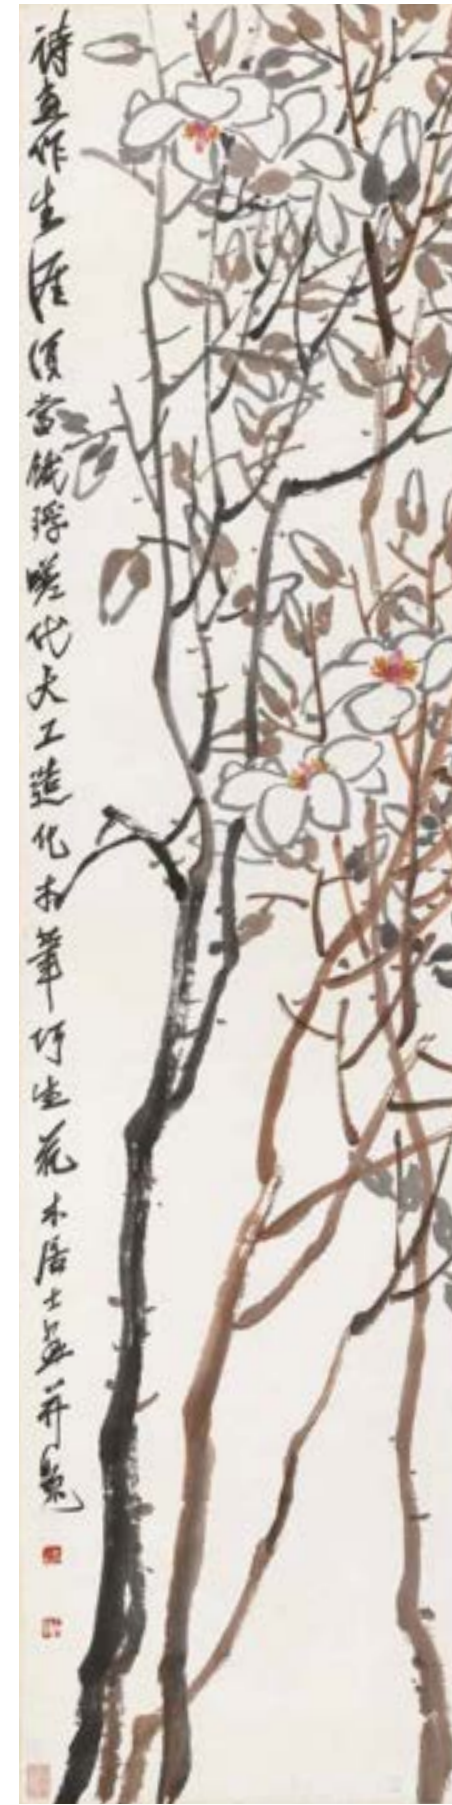 詩畫作生涯須當餓殍嗟代天工造化筆生花木居士畫并題